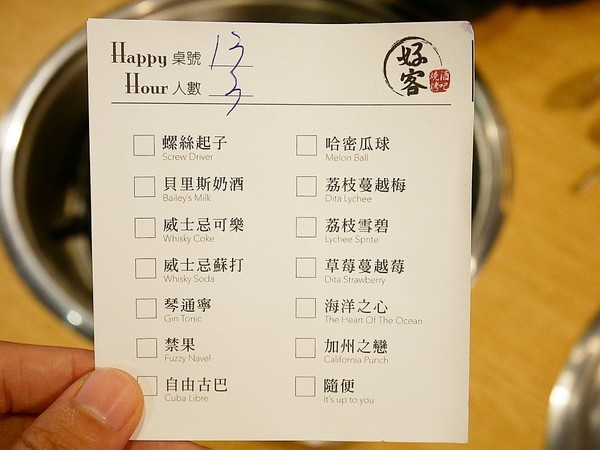 Happy 桌號 13
Hour 人數 3
好客
酒吧
燒烤
螺絲起子
Screw Driver
貝里斯奶酒
Bailey's Milk
威士忌可樂
Whisky Coke
威士忌蘇打
Whisky Soda
琴通寧
Gin Tonic
禁果
Fuzzy Navel
自由古巴
Cuba Libre
哈密瓜球
Melon Ball
荔枝蔓越梅
Dita Lychee
荔枝雪碧
Lychee Sprite
草莓蔓越莓
Dita Strawberry
海洋之心
The Heart Of The Ocean
加州之戀
California Punch
隨便
It's up to you